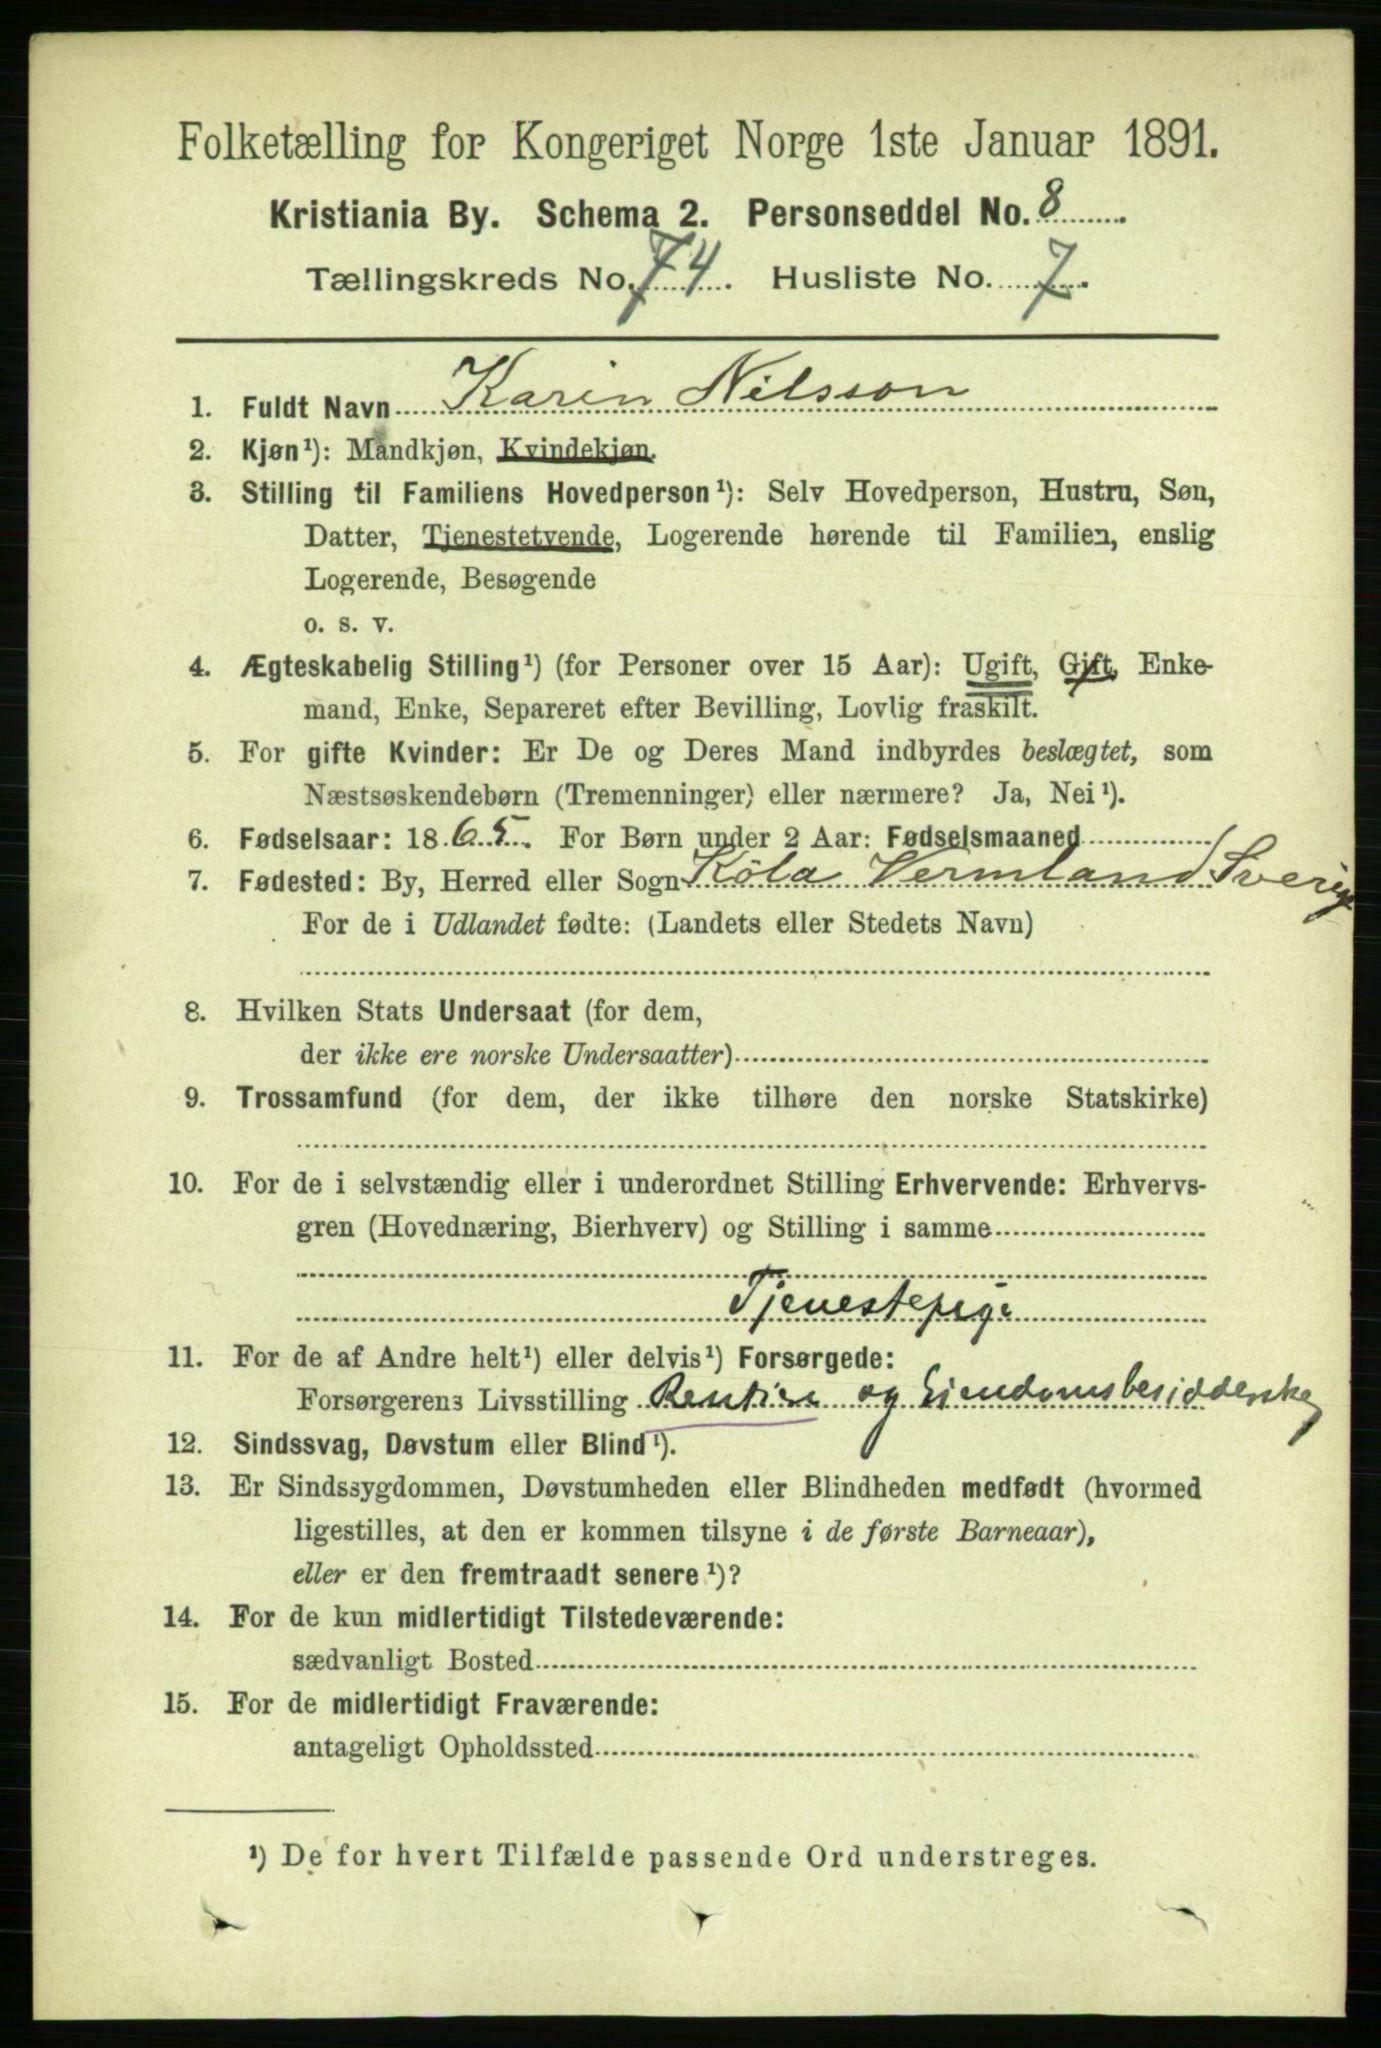 Folketælling for Kongeriget Norge 1ste Januar 1891.
Kristiania By. Schema 2. Personseddel No. 8
Tællingskreds No. 74. Husliste No. 7.
1. Fuldt Navn Karin Nilsson
2. Kjøn¹): Mandkjøn, Kvindekjøn.
3. Stilling til Familiens Hovedperson¹): Selv Hovedperson, Hustru, Søn,
Datter, Tjenestetyende, Logerende hørende til Familien, enslig
Logerende, Besøgende
o. s. v.
4. Ægteskabelig Stilling¹) (for Personer over 15 Aar): Ugift, Gift, Enke-
mand, Enke, Separeret efter Bevilling, Lovlig fraskilt.
5. For gifte Kvinder: Er De og Deres Mand indbyrdes beslægtet, som
Næstsøskendebørn (Tremenninger) eller nærmere? Ja, Nei¹).
6. Fødselsaar: 1865. For Børn under 2 Aar: Fødselsmaaned
7. Fødested: By, Herred eller Sogn Köla Vermland / Sverige
For de i Udlandet fødte: (Landets eller Stedets Navn)
8. Hvilken Stats Undersaat (for dem,
der ikke ere norske Undersaatter)
9. Trossamfund (for dem, der ikke tilhøre den norske Statskirke)
10. For de i selvstændig eller i underordnet Stilling Erhvervende: Erhvervs-
gren (Hovednæring, Bierhverv) og Stilling i samme
Tjenestepige
11. For de af Andre helt¹) eller delvis¹) Forsørgede:
Forsørgerens Livsstilling Rentier og Eiendomsbesidderske
12. Sindssvag, Døvstum eller Blind¹).
13. Er Sindssygdommen, Døvstumheden eller Blindheden medfødt (hvormed
ligestilles, at den er kommen tilsyne i de første Barneaar),
eller er den fremtraadt senere¹)?
14. For de kun midlertidigt Tilstedeværende:
sædvanligt Bosted
15. For de midlertidigt Fraværende:
antageligt Opholdssted
¹) De for hvert Tilfælde passende Ord understreges.